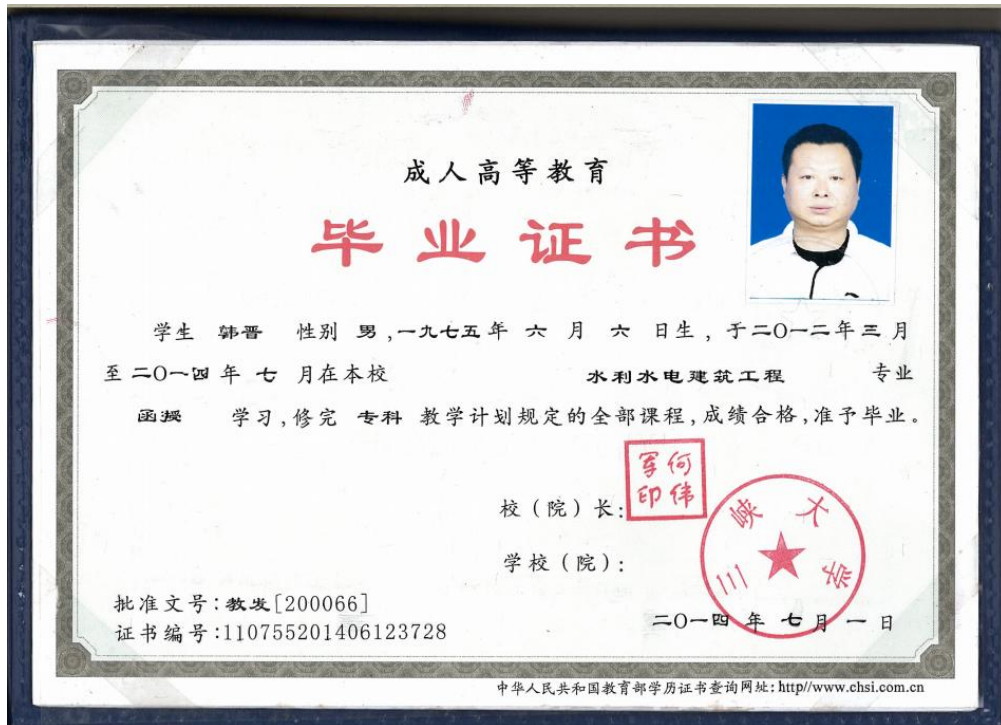 成人高等教育
毕业证书
学生 韩晋 性别 男,一九七五年 六 月 六 日生,于二〇一二年三月
至二〇一四年 七 月在本校 水利水电建筑工程 专业
函授 学习,修完 专科 教学计划规定的全部课程,成绩合格,准予毕业。
何伟军印
校(院)长:
三峡大学
学校(院):
批准文号:教发[200066]
二〇一四 年 七 月 一 日
证书编号:110755201406123728
中华人民共和国教育部学历证书查询网址:http//www.chsi.com.cn